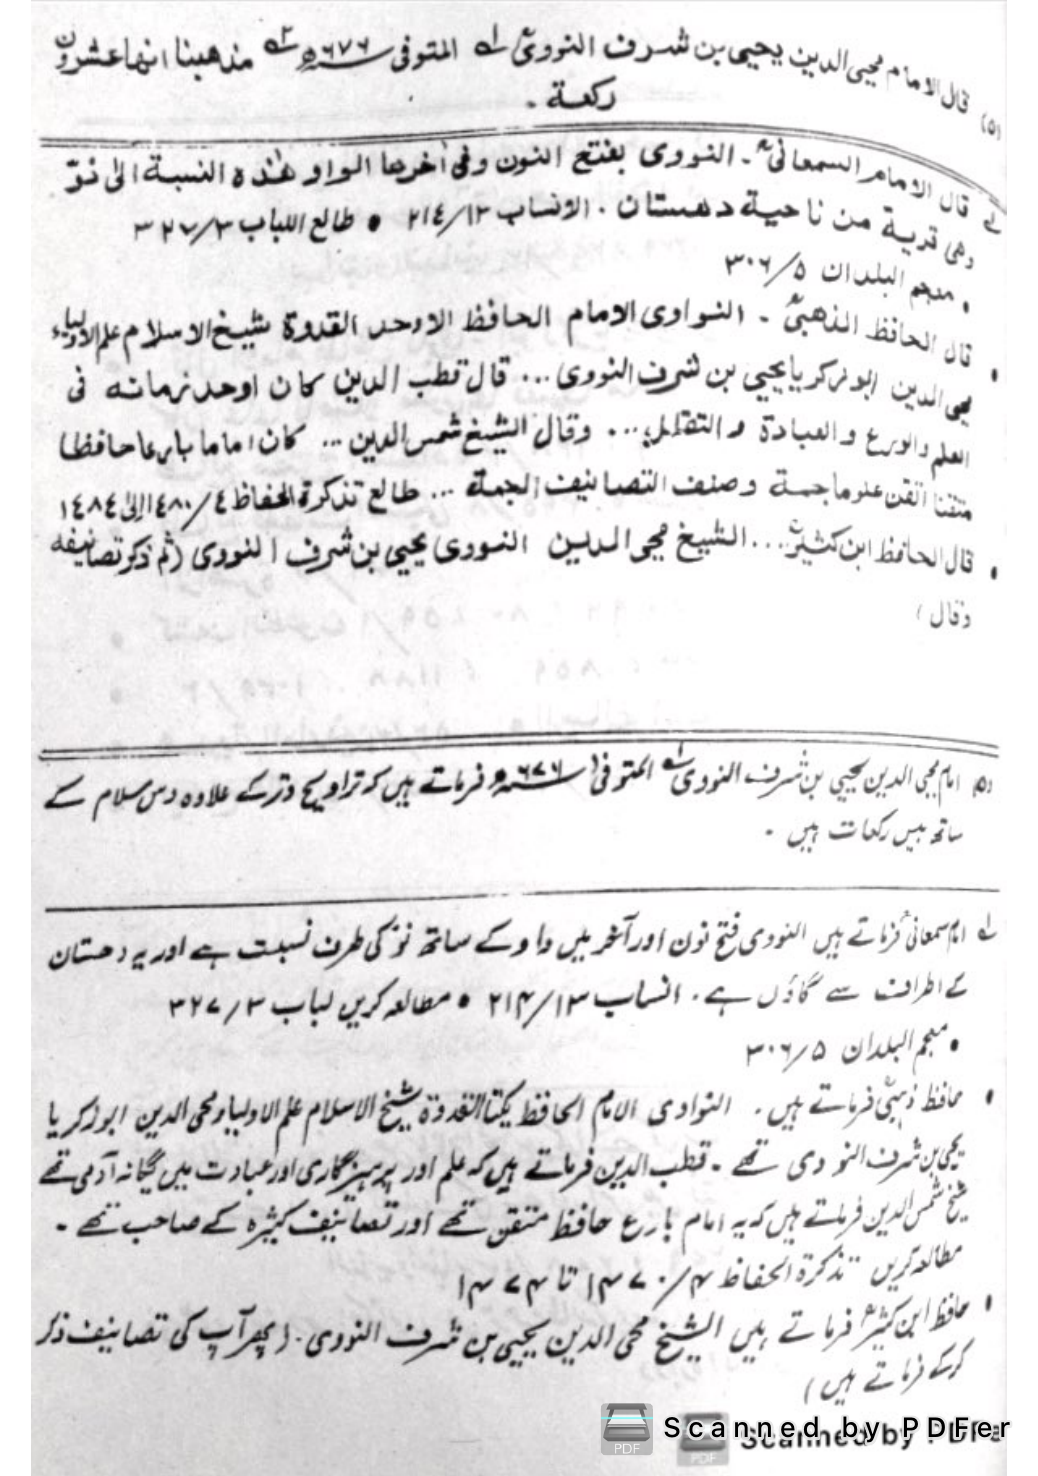 (۵) قال الامام محیی الدین یحیی بن شرف النوویؒ المتوفی ۶۷۶ھ مذهبنا انها عشرون
رکعة ۔
لے قال الامام السمعانیؒ ۔ النووی بفتح النون وفی اٰخرها الواو هٰذه النسبة الی نوٓ
وهی قریة من ناحیة دهستان . الانساب ۲۱٤/۱۳ • طالع اللباب ۳۲۷/۳
• معجم البلدان ۳۰۶/۵
• قال الحافظ الذهبیؒ ۔ النواوی الامام الحافظ الاوحد القدوة شیخ الاسلام علم الاولیاء
محی الدین ابو زکریا یحیی بن شرف النووی ... قال قطب الدین کان اوحد زمانه فی
العلم والورع والعبادة والتقلل ... وقال الشیخ شمس الدین ... کان اماما بارعا حافظا
متقنا اتقن علوما جمة وصنف التصانیف الجمة ... طالع تذکرة الحفاظ ۱٤۸۰/٤ الی ۱٤۸٤
• قال الحافظ ابن کثیرؒ ... الشیخ محی الدین النووی یحیی بن شرف النووی (ثم ذکر تصانیفه
وقال)
(۵) امام محی الدین یحییٰ بن شرف النووی المتوفی ۶۷۶ھ فرماتے ہیں کہ تراویح وتر کے علاوہ دس سلام کے
ساتھ بیس رکعات ہیں ۔
لے امام سمعانیؒ فرماتے ہیں النووی فتح نون اور آخر میں واو کے ساتھ نوٓ کی طرف نسبت ہے اور یہ دھستان
کے اطراف سے گاؤں ہے . انساب ۲۱۴/۱۳ • مطالعہ کریں لباب ۳۲۷/۳
• معجم البلدان ۳۰۶/۵
• حافظ ذہبیؒ فرماتے ہیں . النواوی الامام الحافظ یکتا القدوة شیخ الاسلام علم الاولیاء محی الدین ابو زکریا
یحییٰ بن شرف النووی تھے ۔ قطب الدین فرماتے ہیں کہ علم اور پرہیزگاری اور عبادت میں یگانہ آدمی تھے
شیخ شمس الدین فرماتے ہیں کہ یہ امام بارع حافظ متقن تھے اور تصانیف کثیرہ کے صاحب تھے ۔
مطالعہ کریں تذکرة الحفاظ ۱۴۷۰/۴ تا ۱۴۷۴
• حافظ ابن کثیرؒ فرماتے ہیں الشیخ محی الدین یحییٰ بن شرف النووی . (پھر آپ کی تصانیف ذکر
کرکے فرماتے ہیں)
Scanned by PDFer